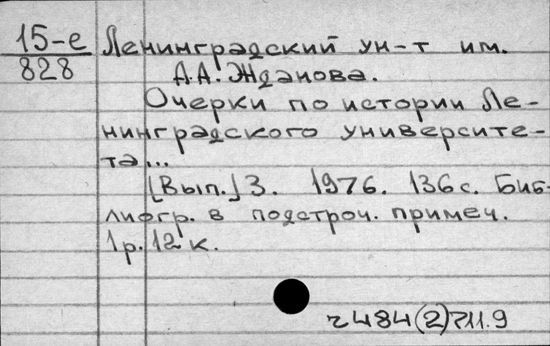 15-е
828
Ленинградский ун-т им.
А.А. Жданова.
Очерки по истории Ле-
нинградского университе-
та...
[Вып.] 3. 1976. 136 с. Биб-
лиогр. в подстроч. примеч.
1 р. 12 к.
ч484(2)711.9